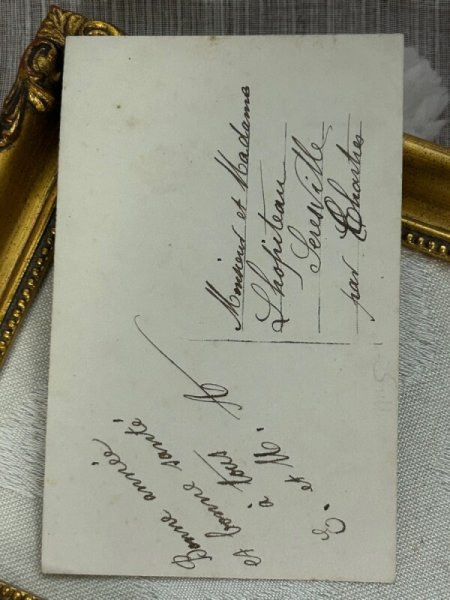 Bonne année
et bonne santé
à tous
E. et M.
Monsieur et Madame
Lhopiteau
Seresville
par Chartres